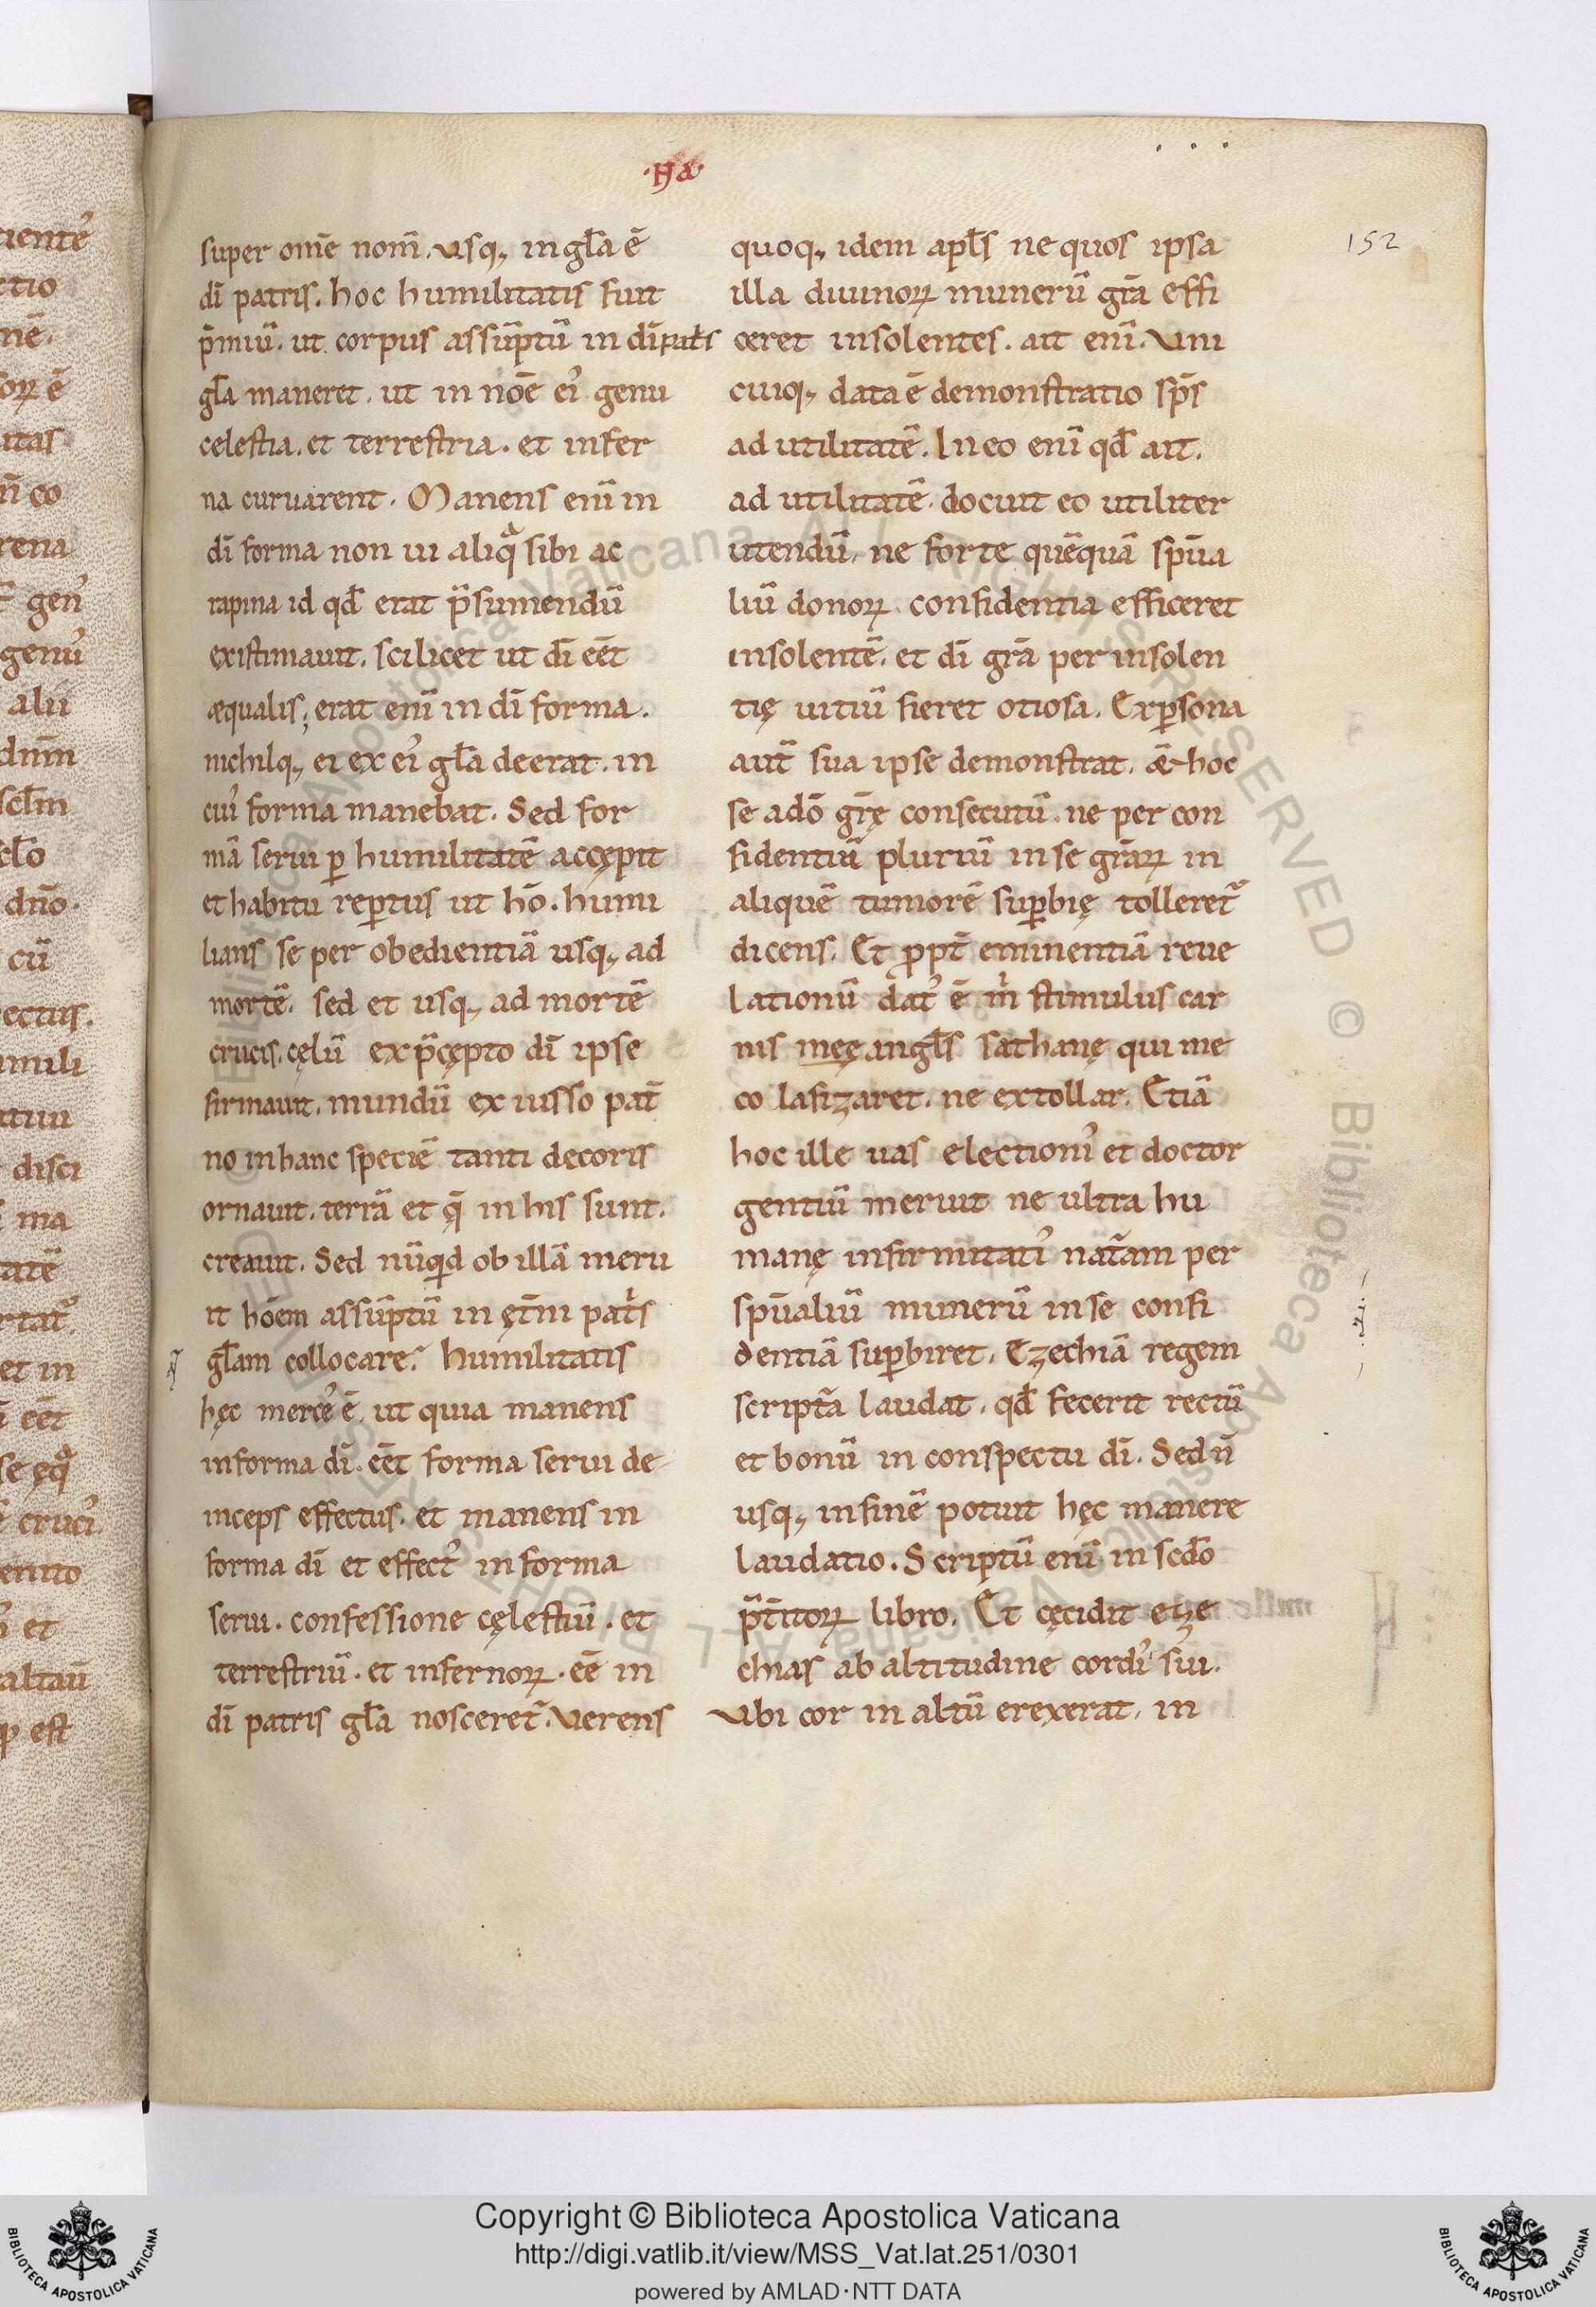 152
super om̄e nom̄. usq; in gl̄a ē
dī patris. hoc humilitatis fuit
p̄miū. ut corpus assūptū in dī pat̄s
gl̄a maneret. ut in nōe ei᾽ genu
celestia. et terrestria. et infer
na curuarent. Manens enī in
dī forma non ui aliq̄ sibi ac
rapina id qd̄ erat p̄sumendū
existimauit. scilicet ut dī eēt
æqualis; erat enī in dī forma.
nichilq; ei ex ei᾽ gl̄a deerat. in
cui᾽ forma manebat. Sed for
mā serui ꝑ humilitatē accępit
et habitu reꝑtus ut hō. humi
lians se per obedientiā usq; ad
mortē. sed et usq; ad mortē
crucis. cęlū ex p̄cępto dī ipse
firmauit. mundū ex iusso pat̄
no in hanc speciē tanti decoris
ornauit. terrā et q̄ in his sunt.
creauit. Sed nūqd ob illā meru
it hōem assūptū in ęt̄ni pat̄s
gl̄am collocare? humilitatis
hęc merce᾽ ē. ut quia manens
in forma dī. eēt forma serui de-
inceps effectus. et manens in
forma dī et effect᾽ in forma
serui. confessione cęlestiū. et
terrestriū. et infernoꝝ. eē in
dī patris gl̄a nosceret̄. Verens
quoq; idem apl̄s ne quos ipsa
illa diuinoꝝ munerū grā effi
ceret insolentes. ait enī. Vni
cuiq; data ē demonstratio sp̄s
ad utilitatē. In eo enī qd̄ ait.
ad utilitatē. docuit eo utiliter
utendū. ne forte quēquā sp̄ua
liū donoꝝ confidentia efficeret
insolentē. et dī grā per insolen
tię uitiū fieret otiosa. Ex ꝑsona
aut̄ sua ipse demonstrat. & hoc
se a dō grę̄ consecutū. ne per con
fidentiū pluriū in se grāꝝ in
aliquē tumorē suꝑbię tolleret̄
dicens. Et ꝓpt̄ eminentiā reue
lationū dat᾽ ē m̄ stimulus car
nis meę angl̄s sathanę qui me
colafizaret. ne extollar. Etiā
hoc ille uas election᾽ et doctor
gentiū meruit ne ultra hu
manę infirmitati᾽ nat̄am per
sp̄ualiū munerū in se confi
dentiā suꝑbiret. Ezechiā regem
script̄a laudat. qd̄ fecerit rectū
et bonū in conspectu dī. Sed n̄
usq; in finē potuit hęc manere
laudatio. Scriptū enī in scd̄o
p̄t̄itoꝝ libro. Et cęcidit eze
chias ab altitudine cordi᾽ sui.
Vbi cor in altū erexerat. in
Copyright © Biblioteca Apostolica Vaticana
http://digi.vatlib.it/view/MSS_Vat.lat.251/0301
powered by AMLAD·NTT DATA